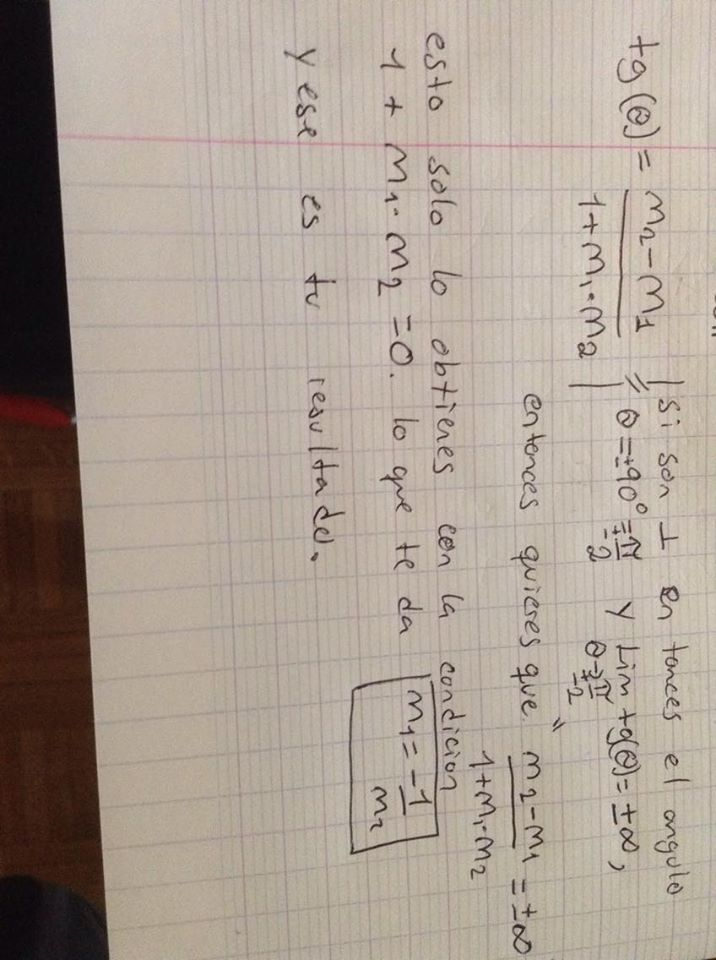 tg(θ) = m₂-m₁ / 1+m₁·m₂ | si son ⊥ en tonces el angulo
θ = ±90° = ±π/2 y Lim θ→±π/2 tg(θ) = ±∞,
entonces quieres que " m₂-m₁ / 1+m₁·m₂ = ±∞
esto solo lo obtienes con la condicion
1 + m₁·m₂ = 0. lo que te da m₁ = -1/m₂
y ese es tu resultado.